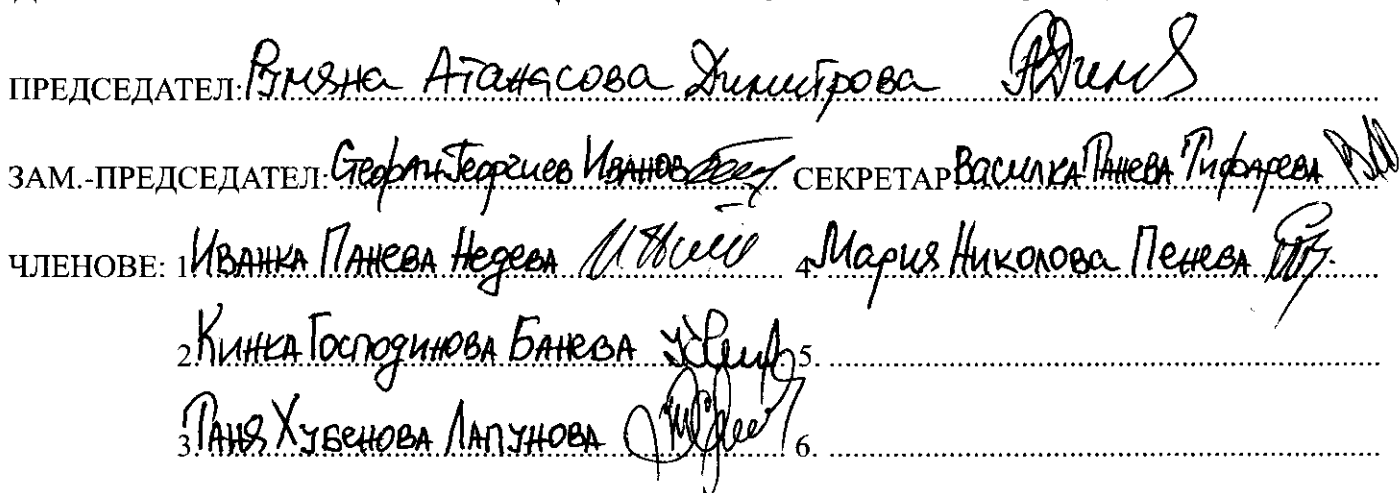 ПРЕДСЕДАТЕЛ: Румяна Атанасова Димитрова
ЗАМ.-ПРЕДСЕДАТЕЛ: Стефан Георгиев Иванов СЕКРЕТАР Василка Панева Тифарева
ЧЛЕНОВЕ: 1 Иванка Панева Недева 4 Мария Николова Пенева
2 Кинка Господинова Банева 5.
3. Таня Хубенова Лапунова 6.